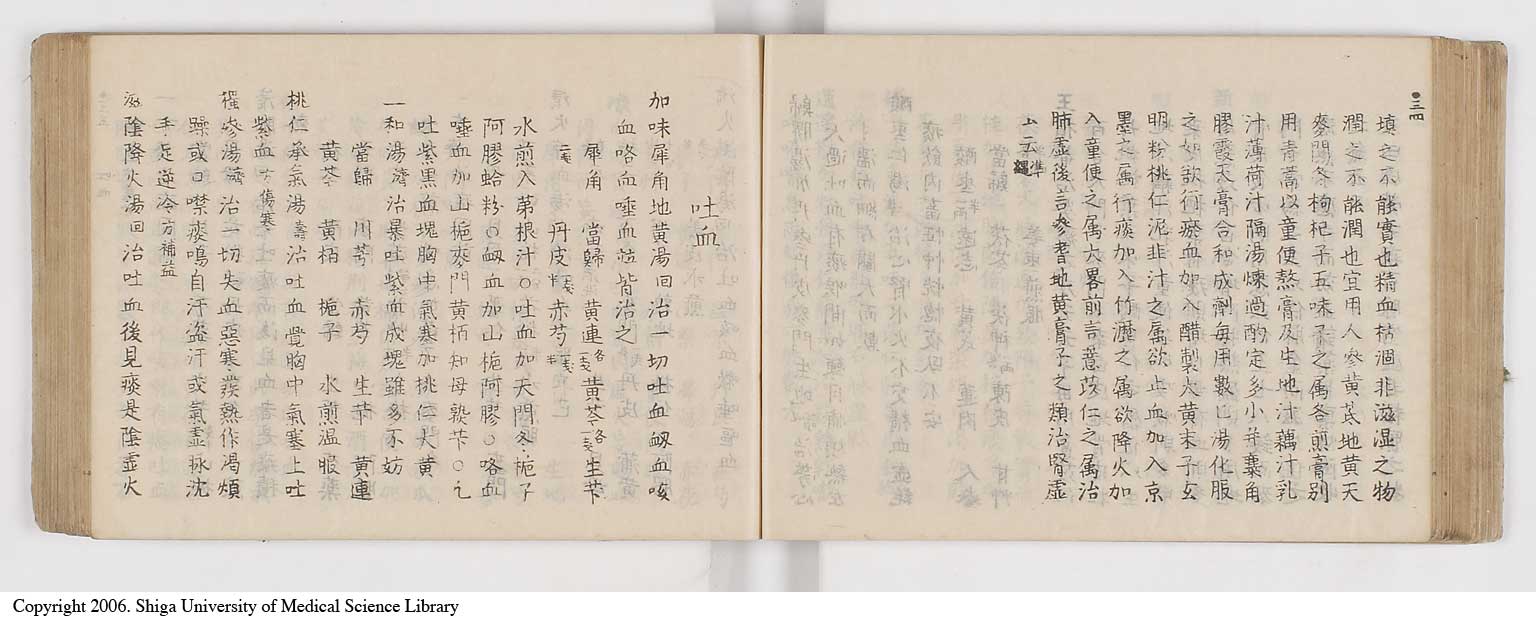 填之不能實也精血枯涸非滋湿之物
潤之不能潤也宜用人參黄芪地黄天
麥門冬枸杞子五味子之属各煎膏别
用青蒿以童便熬膏及生地汁藕汁乳
汁薄荷汁隔湯煉過酌定多小并麝角
膠霞天膏合和成劑每用數匕湯化服
之如欲行瘀血加入醋製大黄末子玄
明粉桃仁泥韭汁之属欲止血加入京
墨之属行痰加入竹瀝之属欲降火加
入童便之属大畧前言薏苡仁之属治
肺虚後言參耆地黄膏子之類治腎虚
吐血
加味犀角地黄湯回治一切吐血衂血咳
血咯血唾血並皆治之
犀角 當歸 黄連各一戔黄芩各一戔生芐
二戔 丹皮一戔半赤芍一戔半
水煎入茅根汁○吐血加天門冬梔子
阿膠蛤粉○衂血加山梔阿膠○咯血
唾血加山梔麥門黄栢知母熟芐○乞
吐紫黒血塊胸中氣塞加桃仁大黄
一和湯濟治暴吐紫血成塊雖多不妨
當歸 川芎 赤芍 生芐 黄連
黄芩 黄栢 梔子 水煎温服
桃仁承氣湯壽治吐血覺胸中氣塞上吐
紫血方傷寒
參湯濟治一切失血惡寒發熱作渴煩
躁或口噤痰鳴自汗盗汗或氣虚脉沈
手足逆冷方補益
陰降火湯回治吐血後見痰是陰虚火
三四